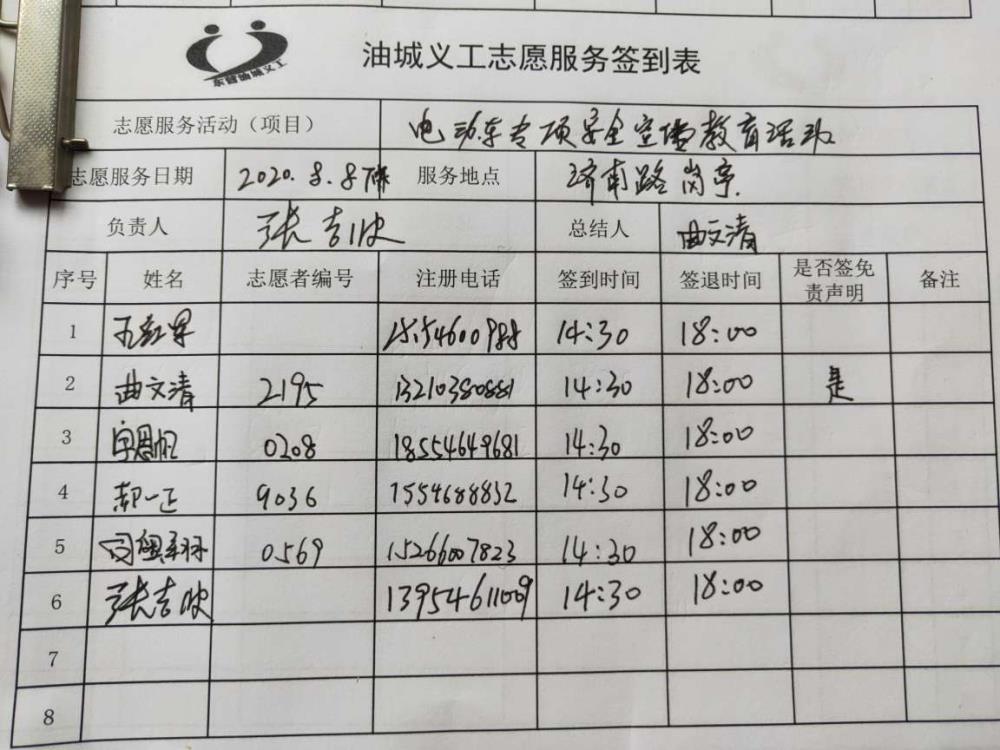 东营油城义工
油城义工志愿服务签到表
志愿服务活动（项目） 电动车专项安全宣传教育活动
志愿服务日期 2020.8.8 服务地点 济南路岗亭
负责人 张吉波 总结人 曲文清
序号 姓名 志愿者编号 注册电话 签到时间 签退时间 是否签免责声明 备注
1 14:30 18:00
2 曲文清 2195 13210380881 14:30 18:00 是
3 0208 18554649681 14:30 18:00
4 郝一正 9036 1554688832 14:30 18:00
5 0569 15266007823 14:30 18:00
6 张吉波 13954611009 14:30 18:00
7
8